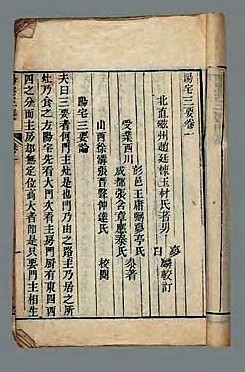 陽宅三要卷一
北直磁州趙廷棟玉材氏著男
夢麟較訂
彭邑王庸弼亭氏
受業西川
成都張含章
參著
山西徐溝張晉聲伸遠氏
校閱
陽宅三要論
夫曰三要者何門主灶是也門乃由之路主乃居之所
灶乃食之方陽宅先看大門次看主房門厨有東四西
四之分而主房却無定位高大者即是只要門主相生